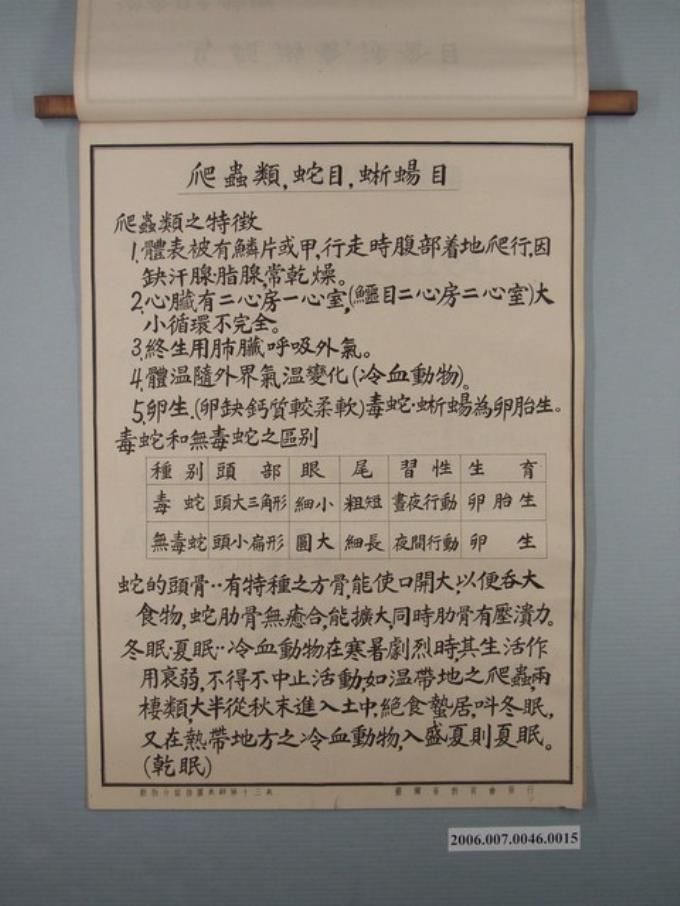 爬蟲類,蛇目,蜥蜴目
爬蟲類之特徵
1.體表被有鱗片或甲,行走時腹部着地爬行,因
缺汗腺·脂腺,常乾燥。
2.心臟有二心房一心室,(鱷目二心房二心室)大
小循環不完全。
3.終生用肺臟呼吸外氣。
4.體温隨外界氣温變化(冷血動物)。
5.卵生.(卵缺鈣質較柔軟)毒蛇·蜥蜴為卵胎生。
毒蛇和無毒蛇之區别
種别 頭部 眼 尾 習性 生育
毒蛇 頭大三角形 細小 粗短 晝夜行動 卵胎生
無毒蛇 頭小扁形 圓大 細長 夜間行動 卵生
蛇的頭骨··有特種之方骨,能使口開大,以便吞大
食物,蛇肋骨無癒合,能擴大,同時肋骨有壓潰力。
冬眠·夏眠··冷血動物在寒暑劇烈時,其生活作
用衰弱,不得不中止活動,如温帶地之爬蟲,兩
棲類,大半從秋末進入土中,絶食蟄居,叫冬眠,
又在熱帶地方之冷血動物,入盛夏則夏眠。
(乾眠)
2006.007.0046.0015